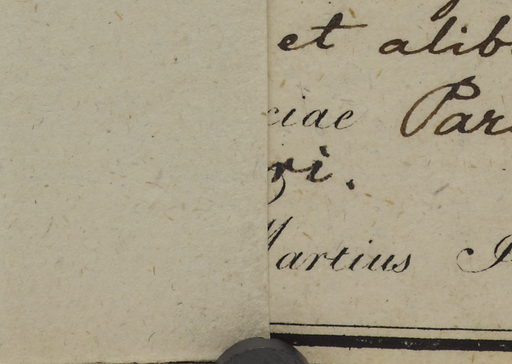 et alib
ciae Par
ri.
Martius